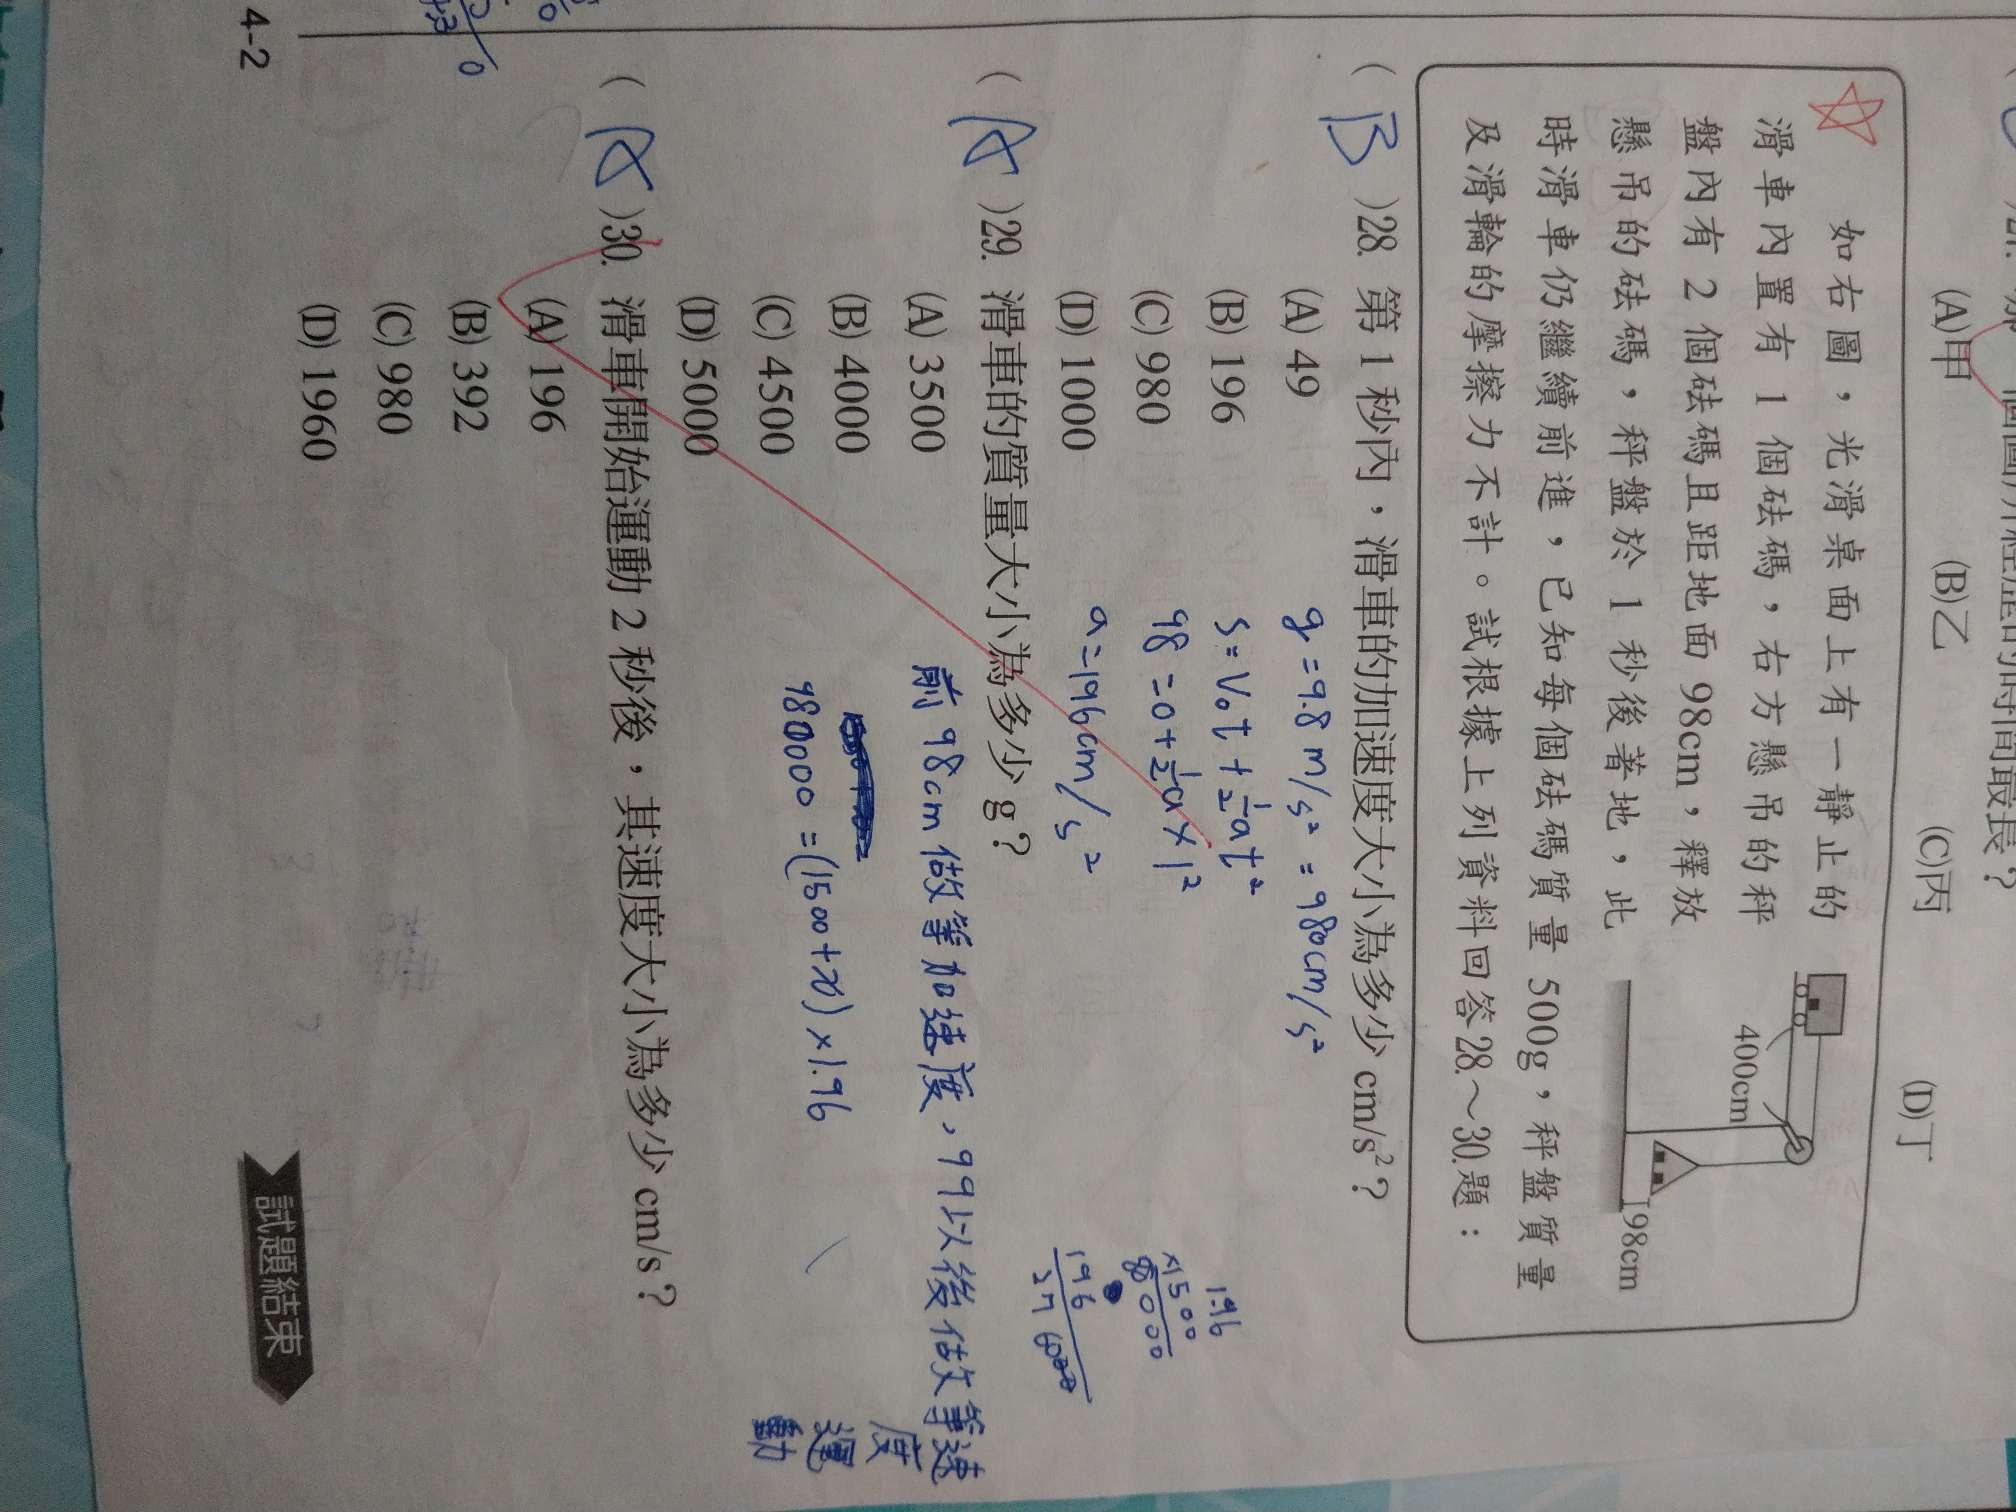 (A)甲
(B)乙
(C)丙
(D)丁
如右圖，光滑桌面上有一靜止的
滑車內置有 1 個砝碼，右方懸吊的秤
盤內有 2 個砝碼且距地面 98cm，釋放
懸吊的砝碼，秤盤於 1 秒後著地，此
時滑車仍繼續前進，已知每個砝碼質量 500g，秤盤質量
及滑輪的摩擦力不計。試根據上列資料回答28.～30.題：
400cm
98cm
( B )28. 第 1 秒內，滑車的加速度大小為多少 cm/s²？
(A) 49
(B) 196
(C) 980
(D) 1000
g = 9.8 m/s² = 980cm/s²
s = V₀t + ½at²
98 = 0 + ½a×1²
a = 196cm/s²
1.96
×1500
196
( A )29. 滑車的質量大小為多少 g？
(A) 3500
(B) 4000
(C) 4500
(D) 5000
前98cm做等加速度，99以後做等速
度
運
動
980000 = (1500+x)×1.96
( A )30. 滑車開始運動 2 秒後，其速度大小為多少 cm/s？
(A) 196
(B) 392
(C) 980
(D) 1960
試題結束
4-2